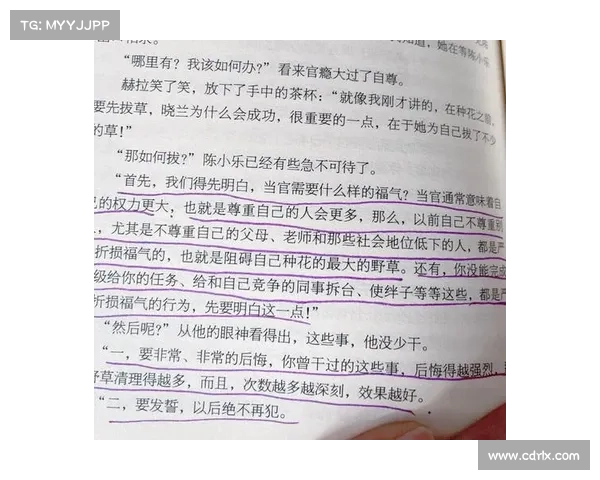 TG: MYYJJPP
知道，她在等陈小乐
“哪里有？我该如何办？”看来官瘾大过了自尊。
赫拉笑了笑，放下了手中的茶杯：“就像我刚才讲的，在种花之前，
要先拔草，晓兰为什么会成功，很重要的一点，在于她为自己拔了不少
的草！”
“那如何拔？”陈小乐已经有些急不可待了。
“首先，我们得先明白，当官需要什么样的福气？当官通常意味着自
己的权力更大；也就是尊重自己的人会更多，那么，以前自己不尊重别
人，尤其是不尊重自己的父母、老师和那些社会地位低下的人，都是严
折损福气的，也就是阻碍自己种花的最大的野草。还有，你没能完成
级给你的任务、给和自己竞争的同事拆台、使绊子等等这些，都是严
折损福气的行为，先要明白这一点！”
“然后呢？”从他的眼神看得出，这些事，他没少干。
“一，要非常、非常的后悔，你曾干过的这些事，后悔得越强烈，
野草清理得越多，而且，次数越多越深刻，效果越好。
“二，要发誓，以后绝不再犯。
www.cdrlx.com